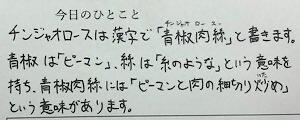 今日のひとこと
チンジャオロースは漢字で「青椒肉絲」と書きます。
チンジャオ ロース―
青椒は「ピーマン」、絲は「糸のような」という意味を
持ち、青椒肉絲には「ピーマンと肉の細切り炒め」
いた
という意味があります。